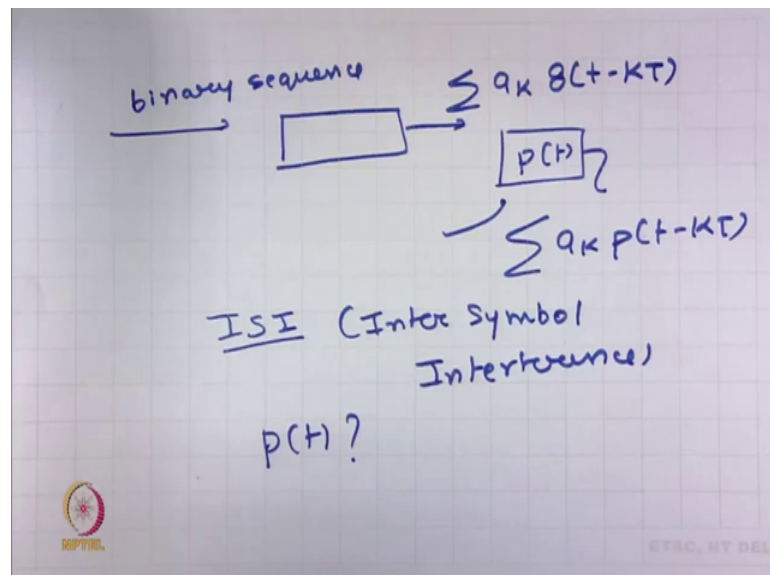 binary sequence
∑ aₖ δ(t-kT)
p(t)
∑ aₖ p(t-kT)
ISI (Inter Symbol
Interference)
p(t) ?
NPTEL
ETSC, IIT DEL